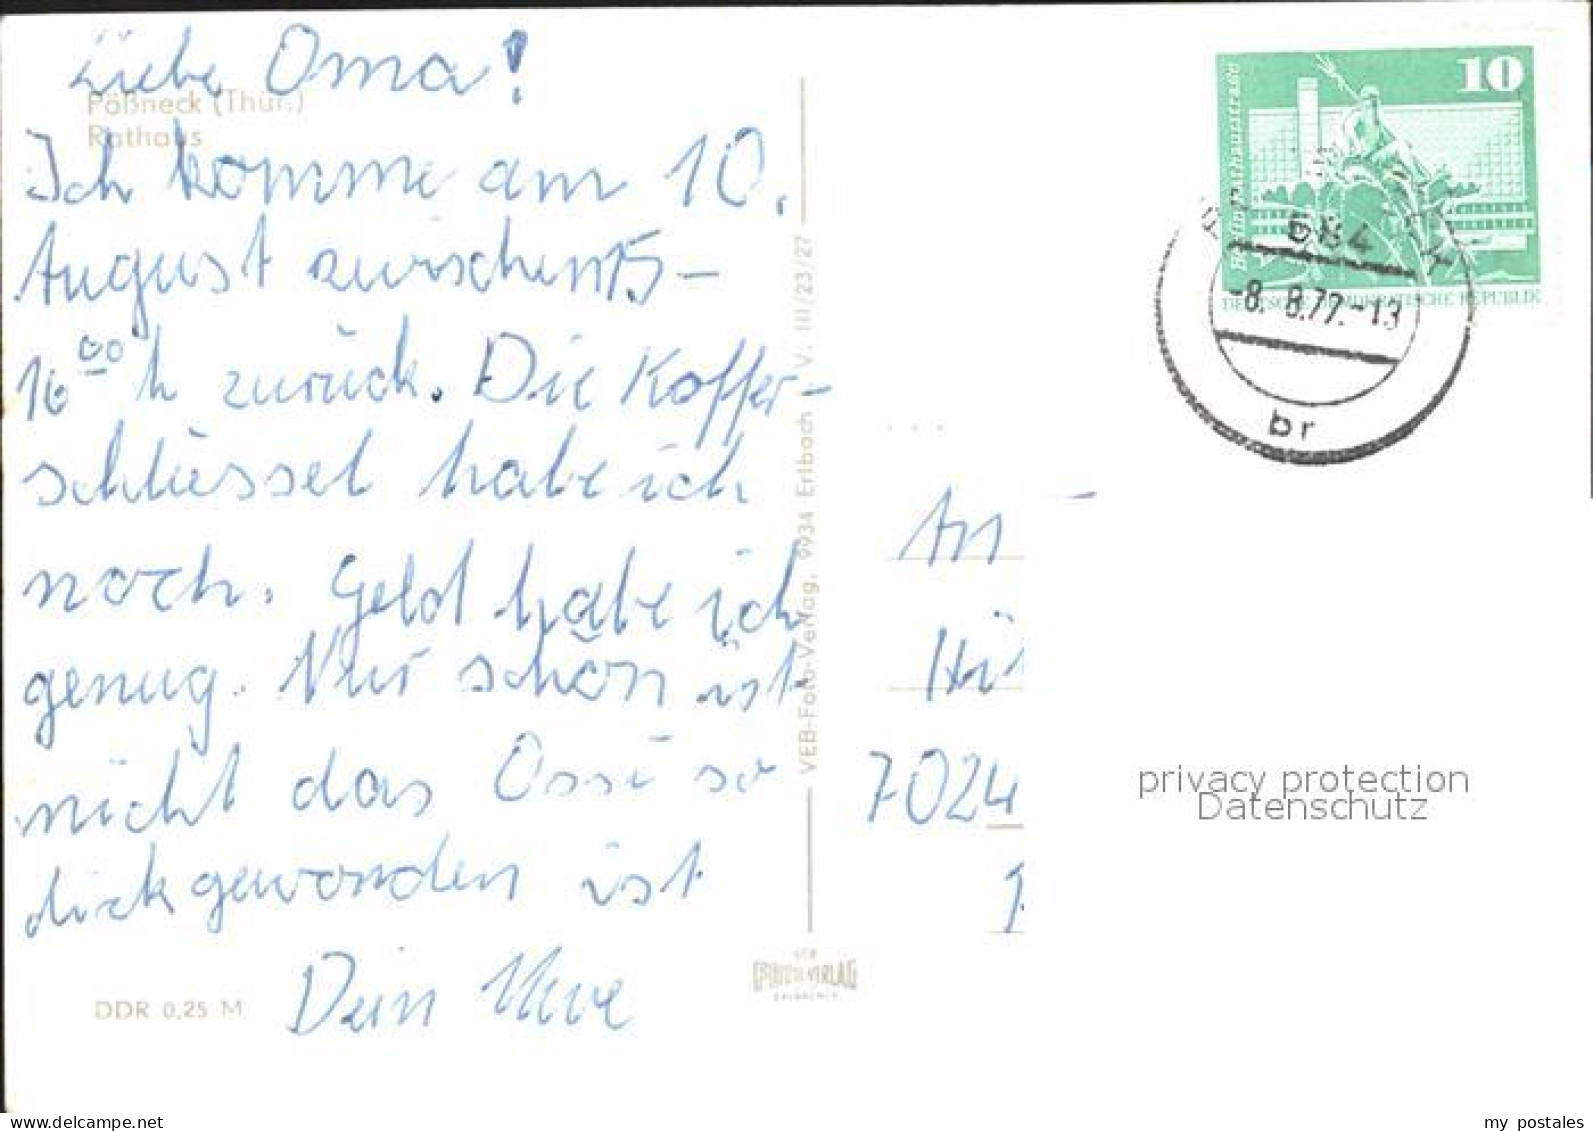 Liebe Oma!
Pößneck (Thür.)
Rathaus
Ich komme am 10.
August zwischen 15-
16 00 h zurück. Die Koffer-
schlüssel habe ich
noch. Geld habe ich
genug. Nur schön ist
nicht das Ossi so
dick geworden ist
Dein Uwe
DDR 0,25 M
VEB-Foto-Verlag, 9934 Erlbach V. III/23/27
VEB
FOTO-VERLAG
ERLBACH
10
Berlin, Rathausstraße
DEUTSCHE DEMOKRATISCHE REPUBLIK
684
-8. 8.77.-13
br
An
7024
privacy protection
Datenschutz
my postales